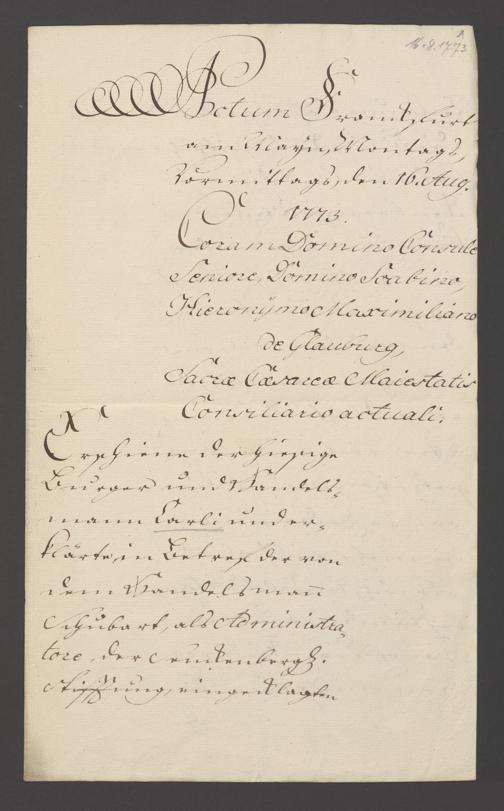 16.8.1773
Actum Franckfurt
am Mayn, Montags,
Vormittags, den 16. Aug.
1773.
Coram Domino Consule
Seniore, Domino Scabino,
Hieronymo Maximiliano
de Glauburg,
Sacræ Cæsareæ Maiestatis
Consiliario actuali.
Erschiene der hiesige
Burger und Handels-
mann Carli und er-
klärte, in Betref der von
dem Handelsmann
Schubart, als Administra-
tore, der Senckenberg.
Stifftung, eingeklagten